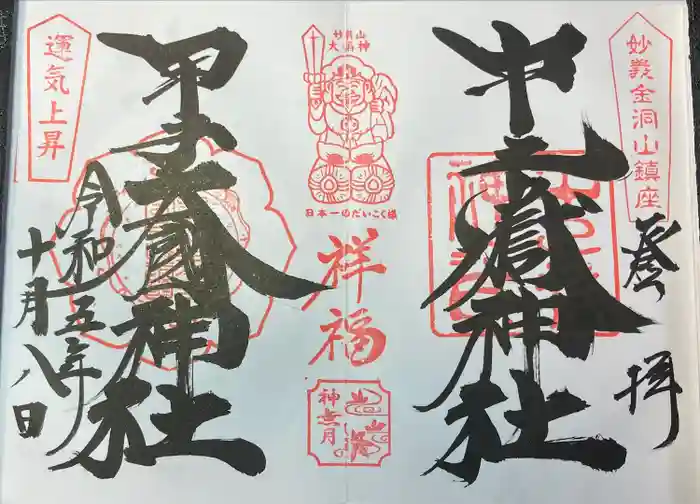 妙義金洞山鎮座
登拝
中之嶽神社
妙義山
大黒神
日本一のだいこく様
祥福
神無月
甲子大國神社
令和五年
十月八日
運気上昇